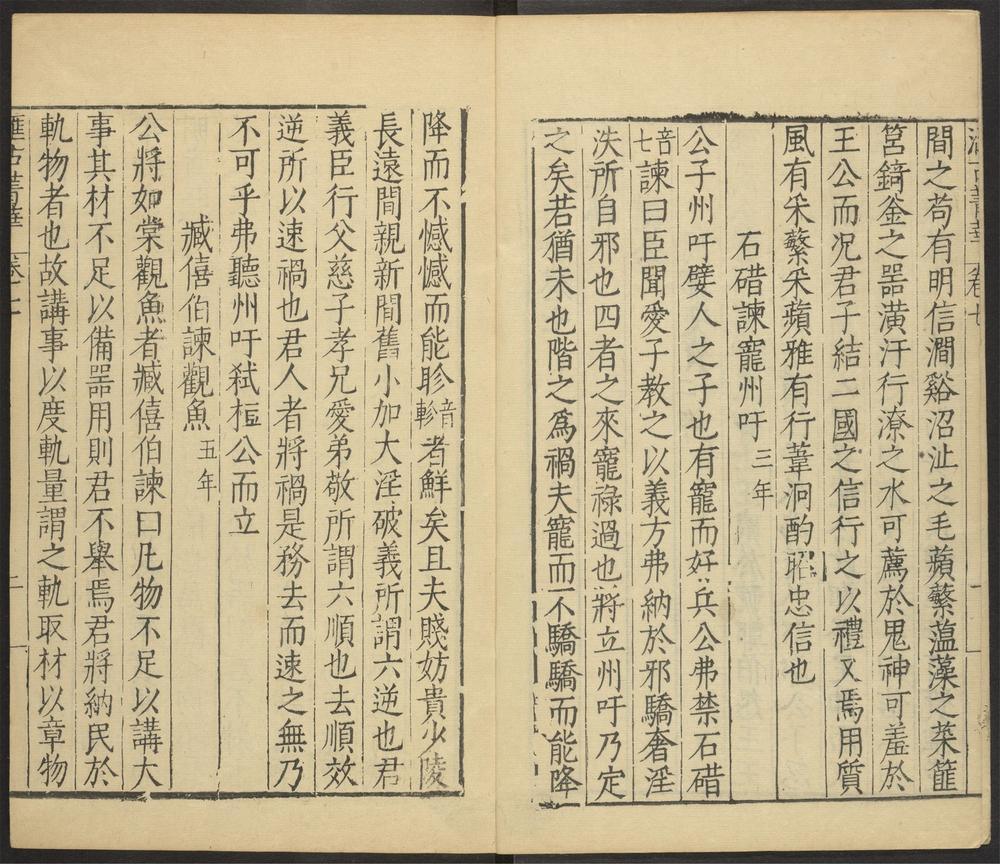 間之苟有明信澗谿沼沚之毛蘋蘩薀藻之菜筐
筥錡釜之器潢汙行潦之水可薦於鬼神可羞於
王公而况君子結二國之信行之以禮又焉用質
風有采蘩采蘋雅有行葦泂酌昭忠信也
石碏諫寵州吁 三年
公子州吁嬖人之子也有寵而好兵公弗禁石碏
音七諫曰臣聞愛子教之以義方弗納於邪驕奢淫
泆所自邪也四者之來寵祿過也將立州吁乃定
之矣若猶未也階之爲禍夫寵而不驕驕而能降
降而不憾憾而能眕音軫者鮮矣且夫賤妨貴少陵
長遠間親新間舊小加大淫破義所謂六逆也君
義臣行父慈子孝兄愛弟敬所謂六順也去順效
逆所以速禍也君人者將禍是務去而速之無乃
不可乎弗聽州吁弒桓公而立
臧僖伯諫觀魚 五年
公將如棠觀魚者臧僖伯諫曰凡物不足以講大
事其材不足以備器用則君不舉焉君將納民於
軌物者也故講事以度軌量謂之軌取材以章物
卷七 二